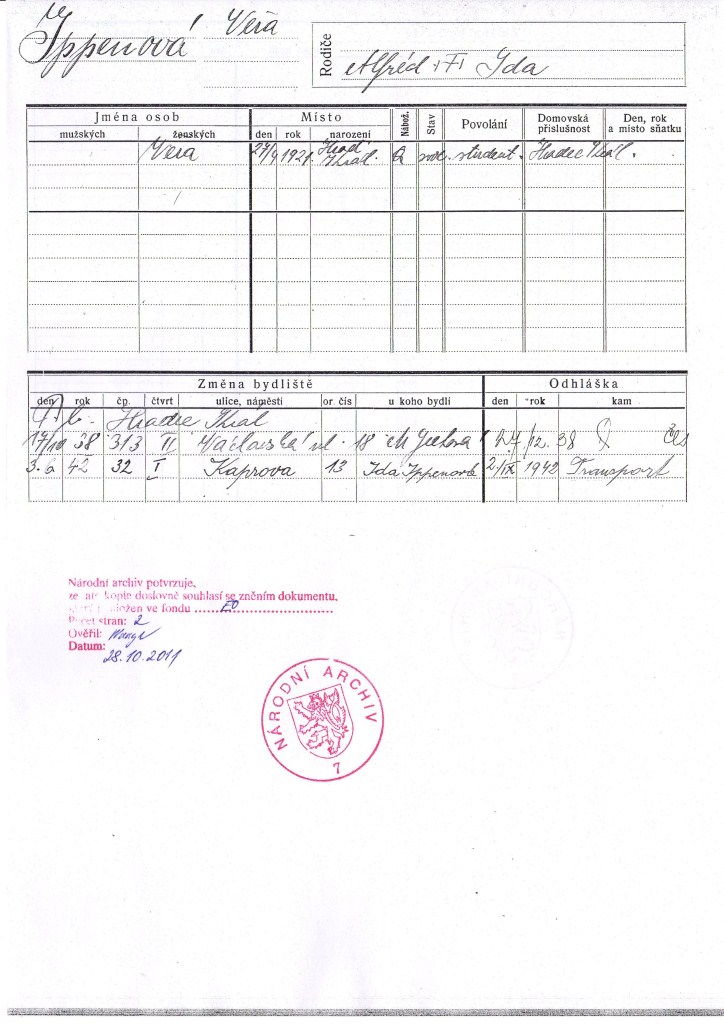 Ippenová Věra
Rodiče
Alfréd Ida
Jména osob Místo Nábož. Stav Povolání Domovská příslušnost Den, rok a místo sňatku
mužských ženských den rok narození
Věra 27/4 1921 Hrad. Král. svob. student. Hradec Král.
Změna bydliště Odhláška
den rok čp. čtvrt ulice, náměstí or. čís u koho bydlí den rok kam
Hradec Král
17/10 38 313 II Václavská ul. 18 27/12. 38
3. 6 42 32 I Kaprova 13 Ida Ippenová 2/IX 1942 Transport
Národní archiv potvrzuje,
že tato kopie doslovně souhlasí se zněním dokumentu,
který je uložen ve fondu EO
Počet stran: 2
Ověřil:
Datum:
28.10.2011
NÁRODNÍ ARCHIV
7